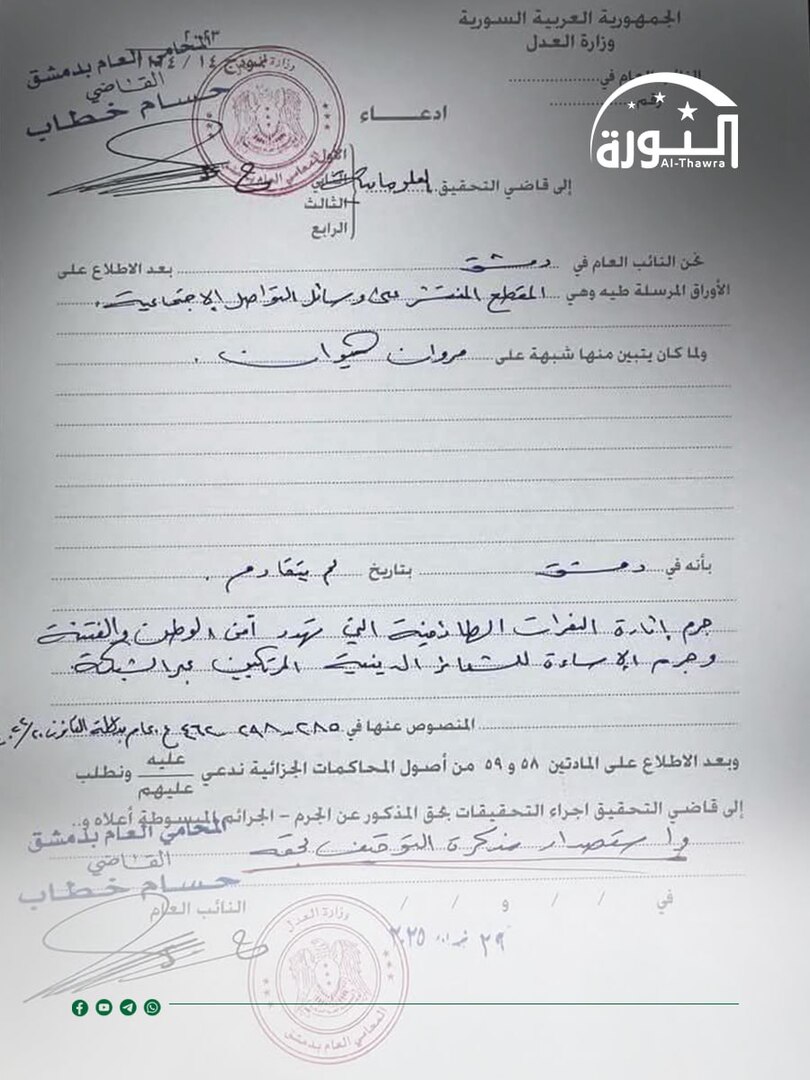 الجمهورية العربية السورية
وزارة العدل
النائب العام في
رقم
المحامي العام بدمشق
القاضي
حسام خطاب
الثورة
Al-Thawra
ادعاء
إلى قاضي التحقيق لمعلوماتية
الأول
الثاني
الثالث
الرابع
نحن النائب العام في دمشق بعد الاطلاع على
الأوراق المرسلة طيه وهي المقطع المنتشر على وسائل التواصل الاجتماعية.
ولما كان يتبين منها شبهة على مروان كيوان.
بأنه في دمشق بتاريخ لم يتقادم.
جرم إثارة النعرات الطائفية التي تهدد أمن الوطن والفتنة
وجرم الإساءة للشعائر الدينية المرتكبين عبر الشبكة.
المنصوص عنها في ٢٨٥ - ٢٩٨ - ٤٦٢ ع. عام بدلالة القانون
وبعد الاطلاع على المادتين ٥٨ و ٥٩ من أصول المحاكمات الجزائية ندعي عليه ونطلب
عليهم
إلى قاضي التحقيق اجراء التحقيقات بحق المذكور عن الجرم - الجرائم المبسوطة أعلاه و..
واستصدار مذكرة التوقيف بحقه
المحامي العام بدمشق
القاضي
حسام خطاب
النائب العام
في / / و / /
٢٩ ٢٠٢٥
وزارة العدل
المحامي العام بدمشق